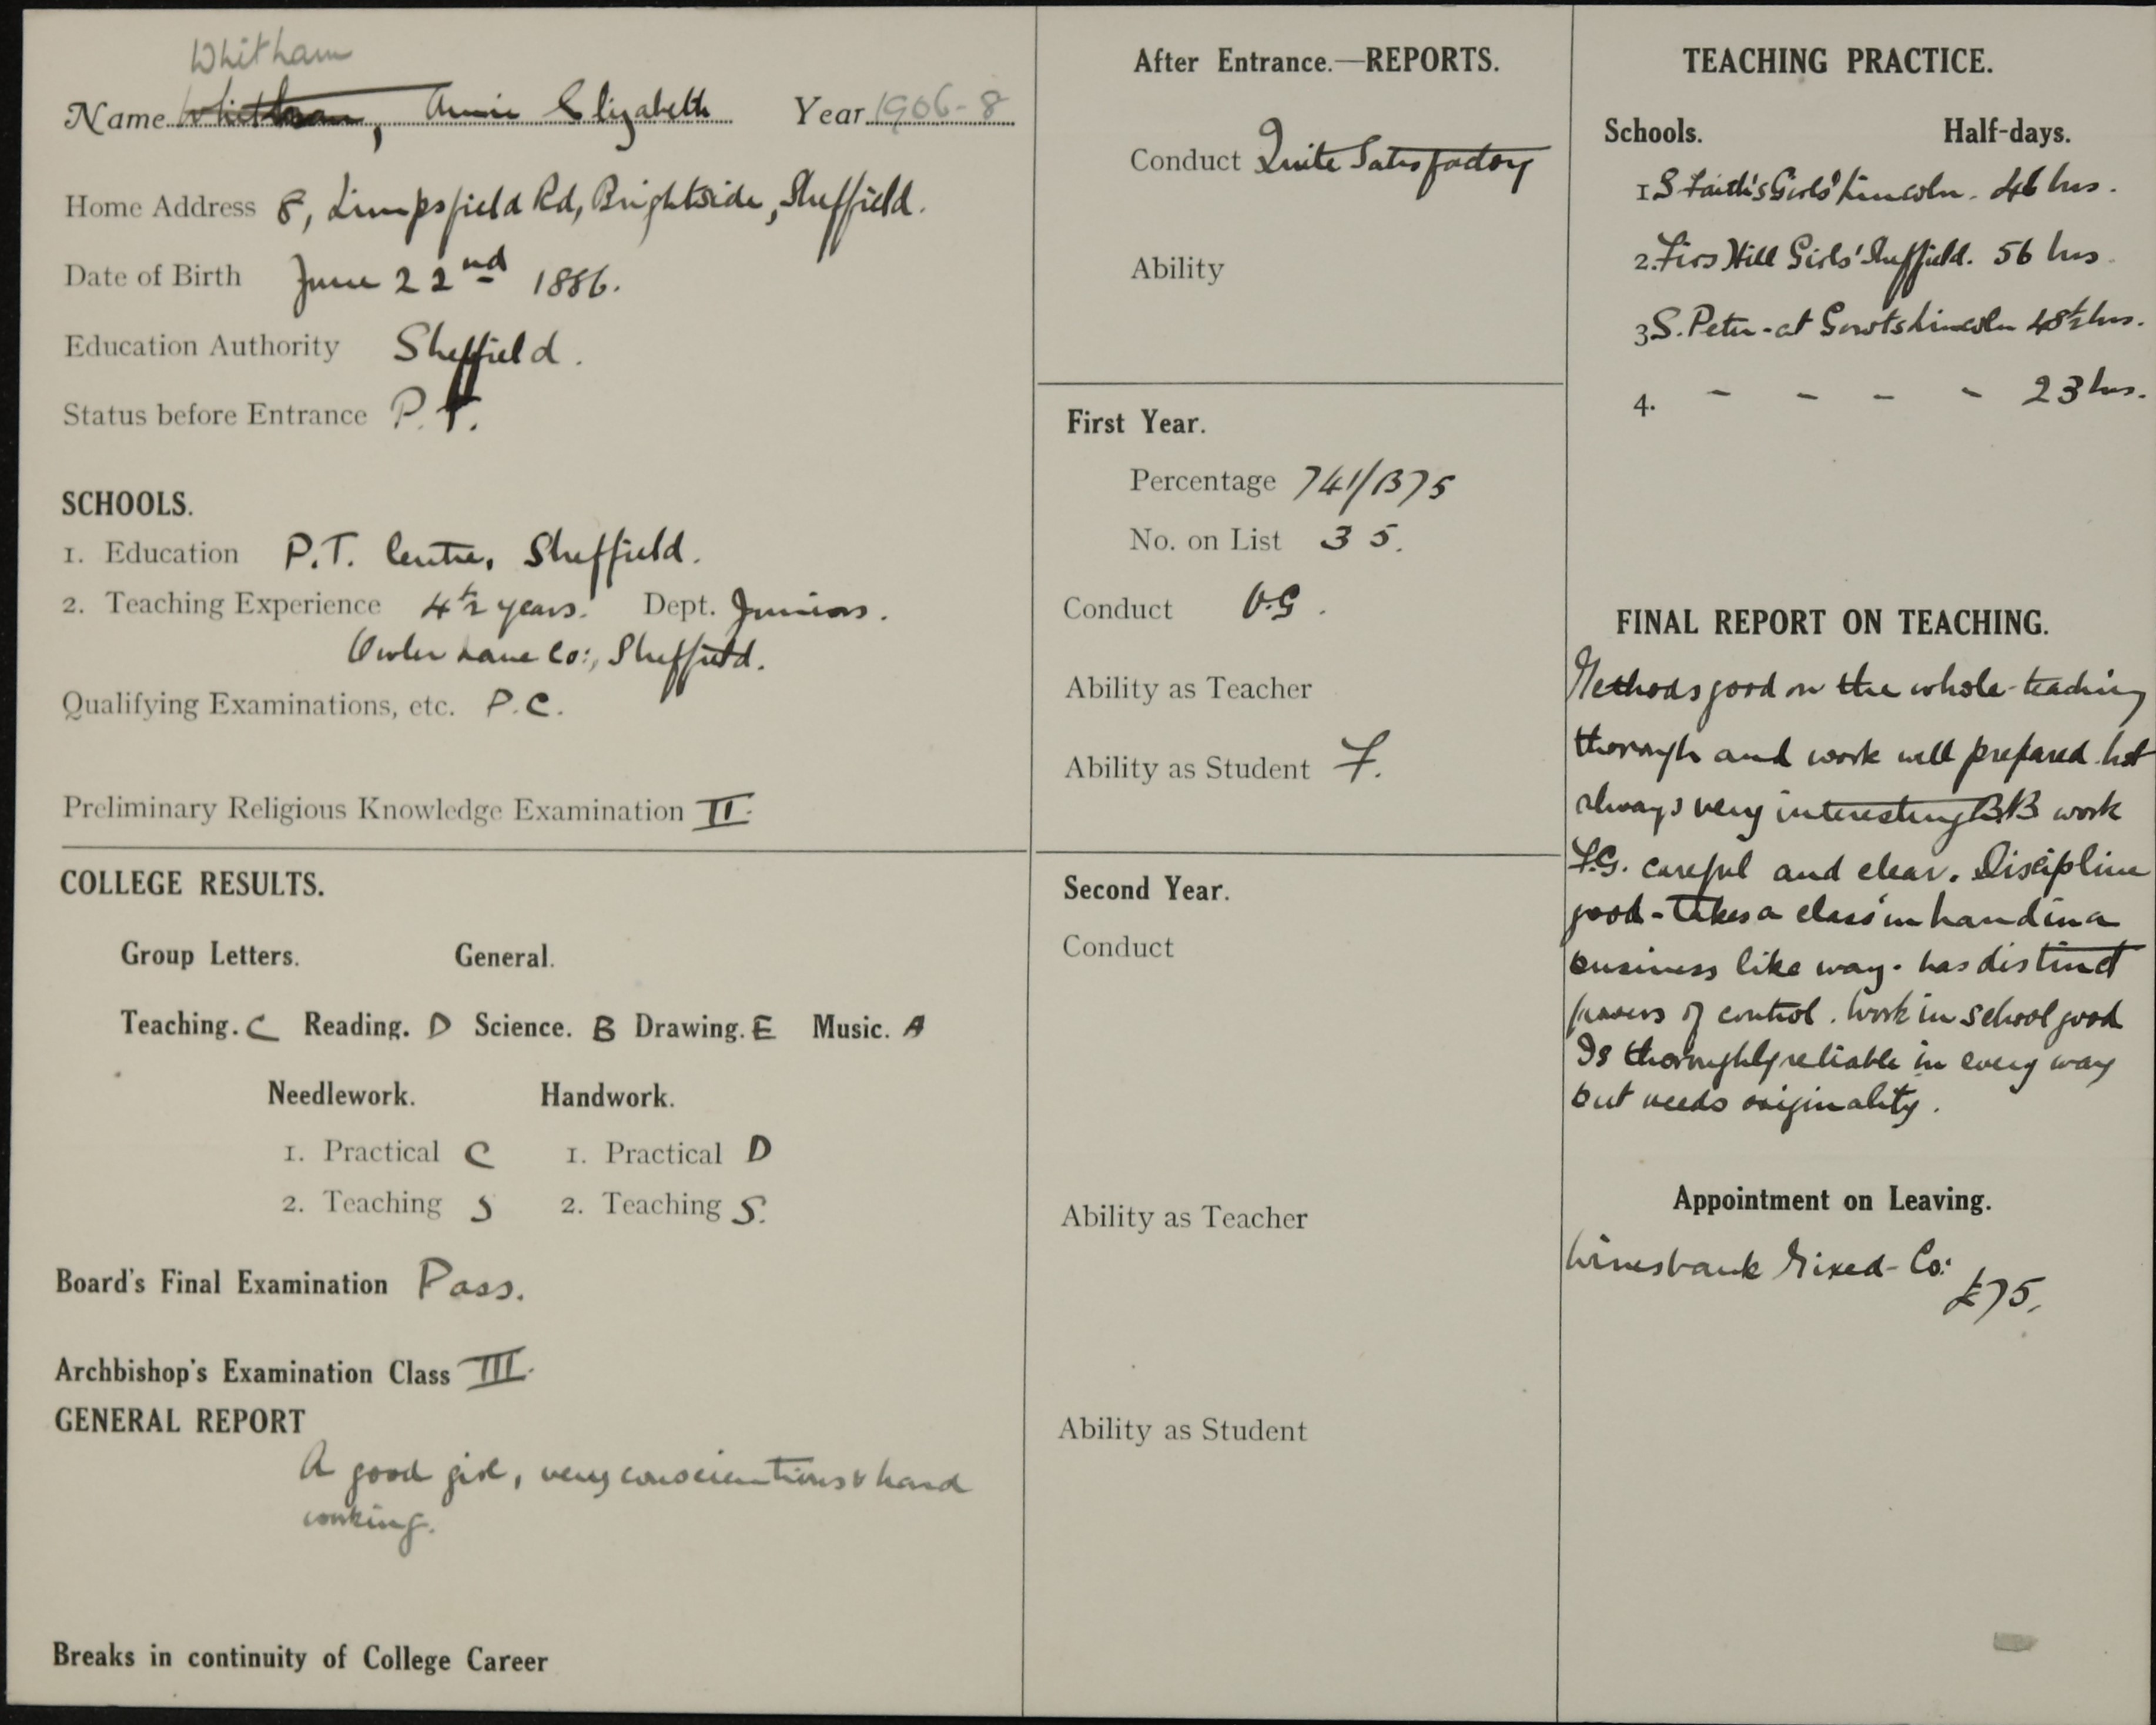 Whitham
Name Whitham, Annie Elizabeth Year 1906-8
Home Address 8, Limpsfield Rd, Brightside, Sheffield.
Date of Birth June 22nd 1886.
Education Authority Sheffield.
Status before Entrance P.T.
SCHOOLS.
1. Education P.T. Centre, Sheffield.
2. Teaching Experience 4½ years. Dept. Juniors.
Owler Lane Co:, Sheffield.
Qualifying Examinations, etc. P.C.
Preliminary Religious Knowledge Examination II.
COLLEGE RESULTS.
Group Letters. General.
Teaching. C Reading. D Science. B Drawing. E Music. A
Needlework. Handwork.
1. Practical C 1. Practical D
2. Teaching S 2. Teaching S.
Board's Final Examination Pass.
Archbishop's Examination Class III.
GENERAL REPORT
A good girl, very conscientious & hard
working.
Breaks in continuity of College Career
After Entrance.—REPORTS.
Conduct Quite Satisfactory
Ability
First Year.
Percentage 741/1375
No. on List 35.
Conduct V.G.
Ability as Teacher
Ability as Student F.
Second Year.
Conduct
Ability as Teacher
Ability as Student
TEACHING PRACTICE.
Schools. Half-days.
1 S. Faith's Girls' Lincoln. 46 hrs.
2. Firs Hill Girls' Sheffield. 56 hrs.
3 S. Peter-at Gowts Lincoln 48½ hrs.
4. - - - - 23 hrs.
FINAL REPORT ON TEACHING.
Methods good on the whole - teaching
thorough and work well prepared. not
always very interesting BB work
F.G. careful and clear. Discipline
good - takes a class in hand in a
business like way - has distinct
powers of control. Work in school good
Is thoroughly reliable in every way
but needs originality.
Appointment on Leaving.
Mixed - Co:
£75.